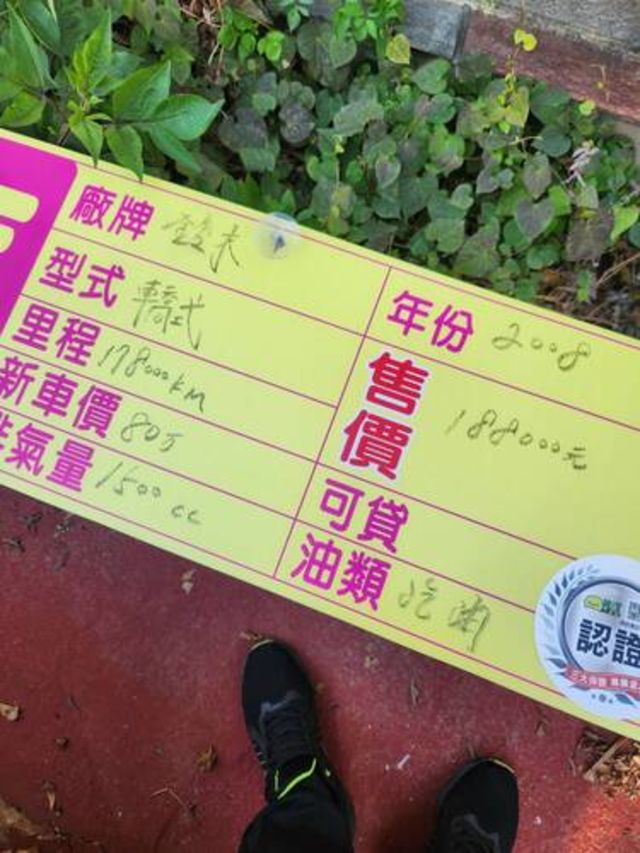 廠牌
型式 轎式
里程 178000KM
新車價 80万
排氣量 1500cc
年份 2008
售價 188000元
可貸
油類 汽油
認證